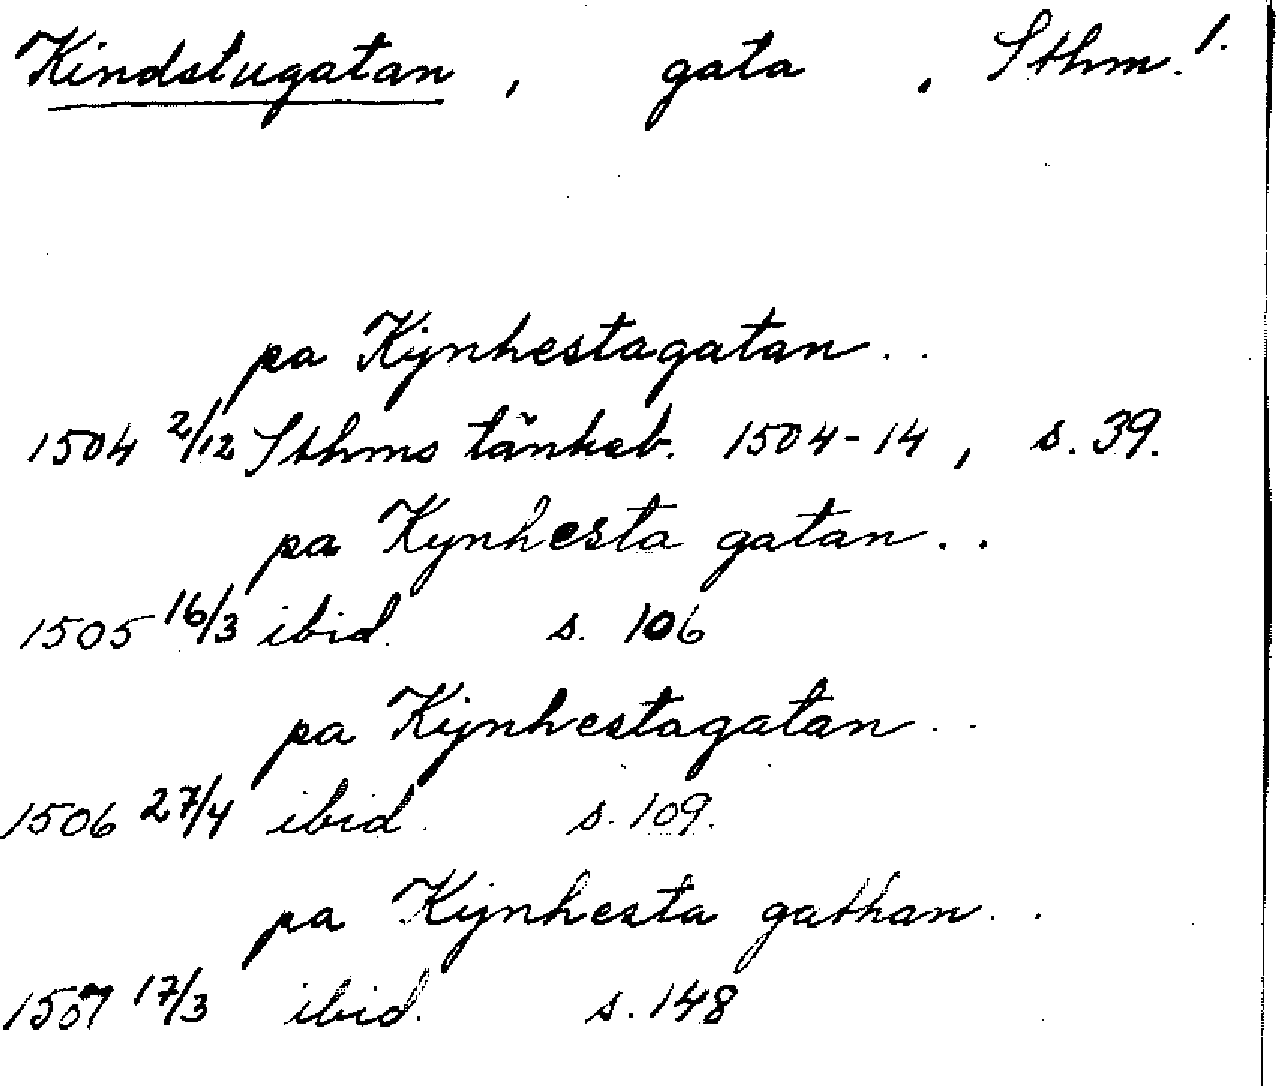 Kindstugatan, gata, Sthm. 1.
pa Kijnhestagatan..
1504 2/12 Sthms tänkeb. 1504-14, s. 39.
pa Kynhesta gatan..
1505 16/3 ibid. s. 106
pa Kijnhestagatan..
1506 27/4 ibid. s. 109.
pa Kijnhesta gathan..
1507 17/3 ibid. s. 148